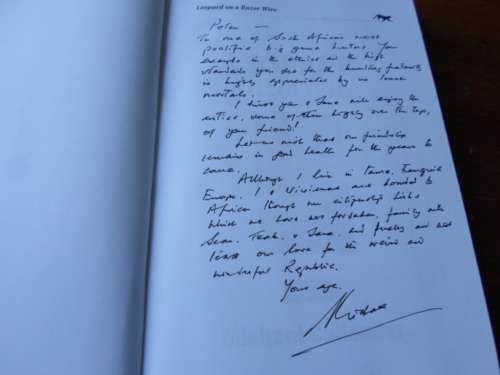 Leopard on a Razor Wire
Peter —
To one of South Africa's most
prolific big game hunters. Your
example in the ethics and the high
standards you set for the hunting fraternity
is highly appreciated by us lesser
mortals.
I trust you & Jana will enjoy the
antics, some of them highly over the top,
of your friend!
Let us wish that our friendship
remains in good health for the years to
come.
Although I live in France,
Europe, I & Vivienne are bonded to
Africa through our citizenship links
which we have not forsaken, family with
Sean, & Jana, and finally and not
least our love for this weird and
wonderful Republic.
Yours aye,
Michael